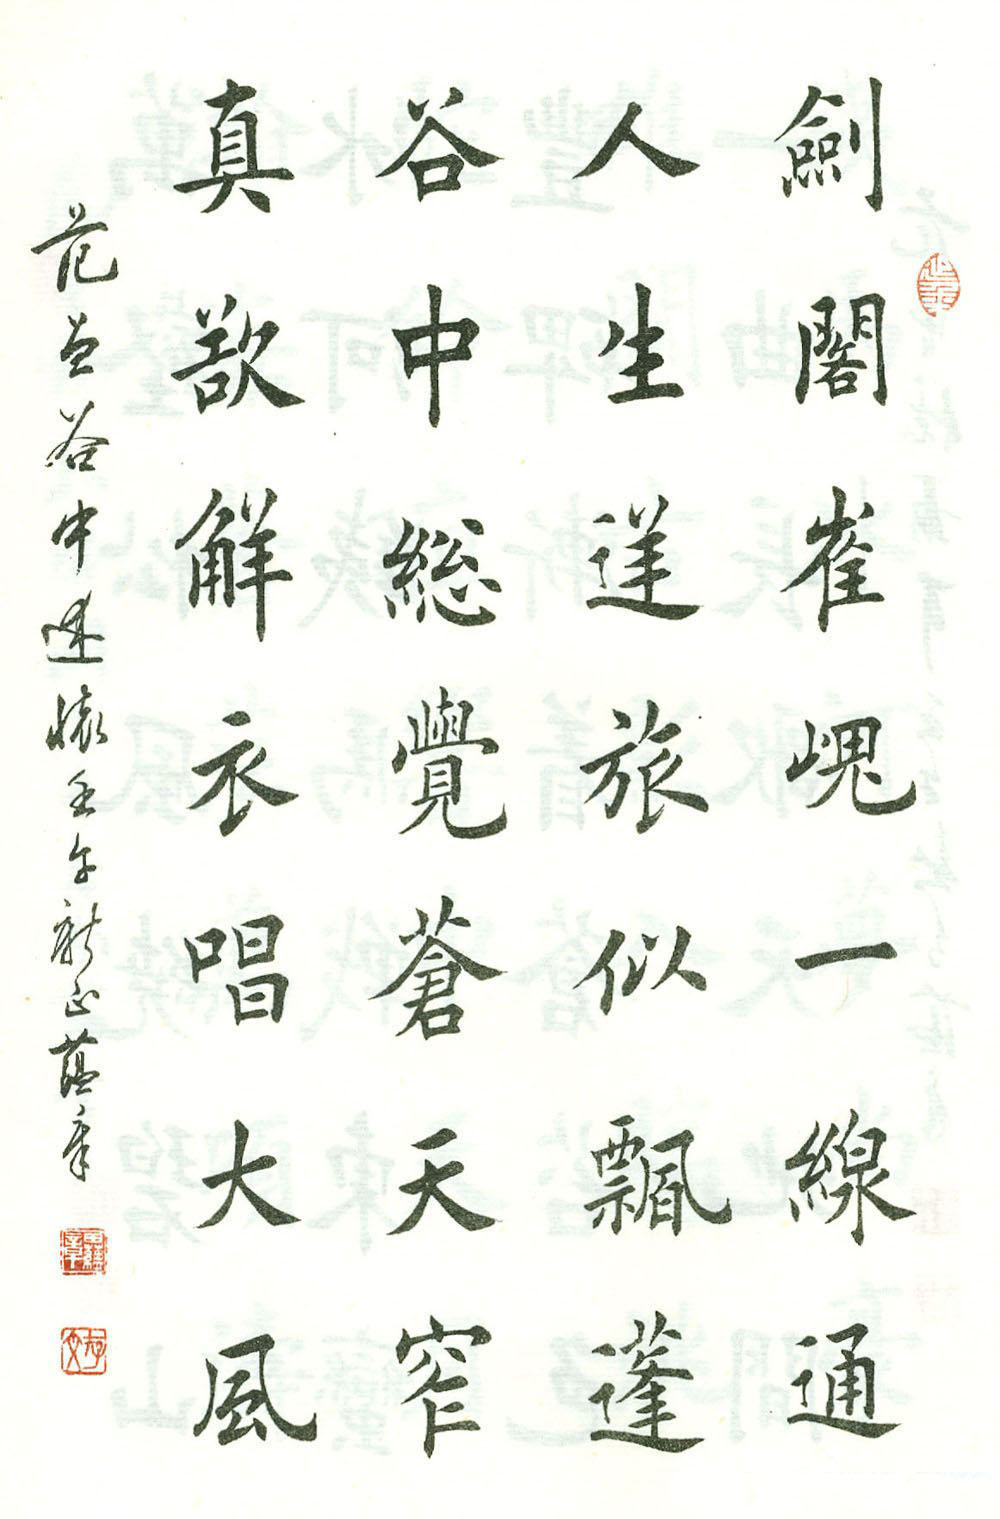 劍閣崔嵬一線通
人生逆旅似飄蓬
谷中総覺蒼天窄
真欲解衣唱大風
范曾谷中述懷壬午新正蘊章